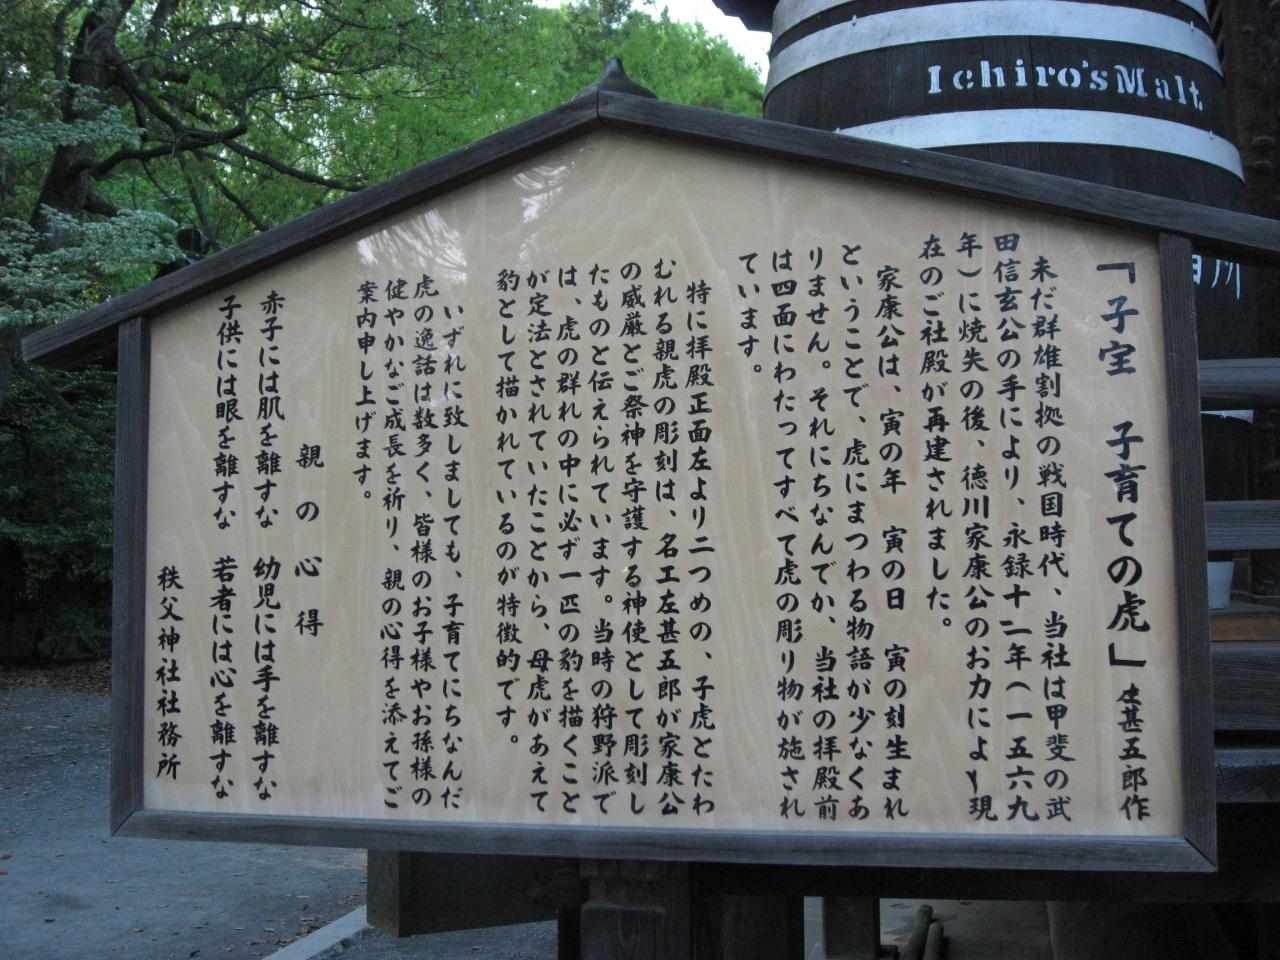 Ichiro's Malt
「子宝 子育ての虎」 左甚五郎作
未だ群雄割拠の戦国時代、当社は甲斐の武
田信玄公の手により、永録十二年(一五六九
年)に焼失の後、徳川家康公のお力により現
在のご社殿が再建されました。
家康公は、寅の年 寅の日 寅の刻生まれ
ということで、虎にまつわる物語が少なくあ
りません。それにちなんでか、当社の拝殿前
は四面にわたってすべて虎の彫り物が施され
ています。
特に拝殿正面左より二つめの、子虎とたわ
むれる親虎の彫刻は、名工左甚五郎が家康公
の威厳とご祭神を守護する神使として彫刻し
たものと伝えられています。当時の狩野派で
は、虎の群れの中に必ず一匹の豹を描くこと
が定法とされていたことから、母虎があえて
豹として描かれているのが特徴的です。
いずれに致しましても、子育てにちなんだ
虎の逸話は数多く、皆様のお子様やお孫様の
健やかなご成長を祈り、親の心得を添えてご
案内申し上げます。
親の心得
赤子には肌を離すな 幼児には手を離すな
子供には眼を離すな 若者には心を離すな
秩父神社社務所